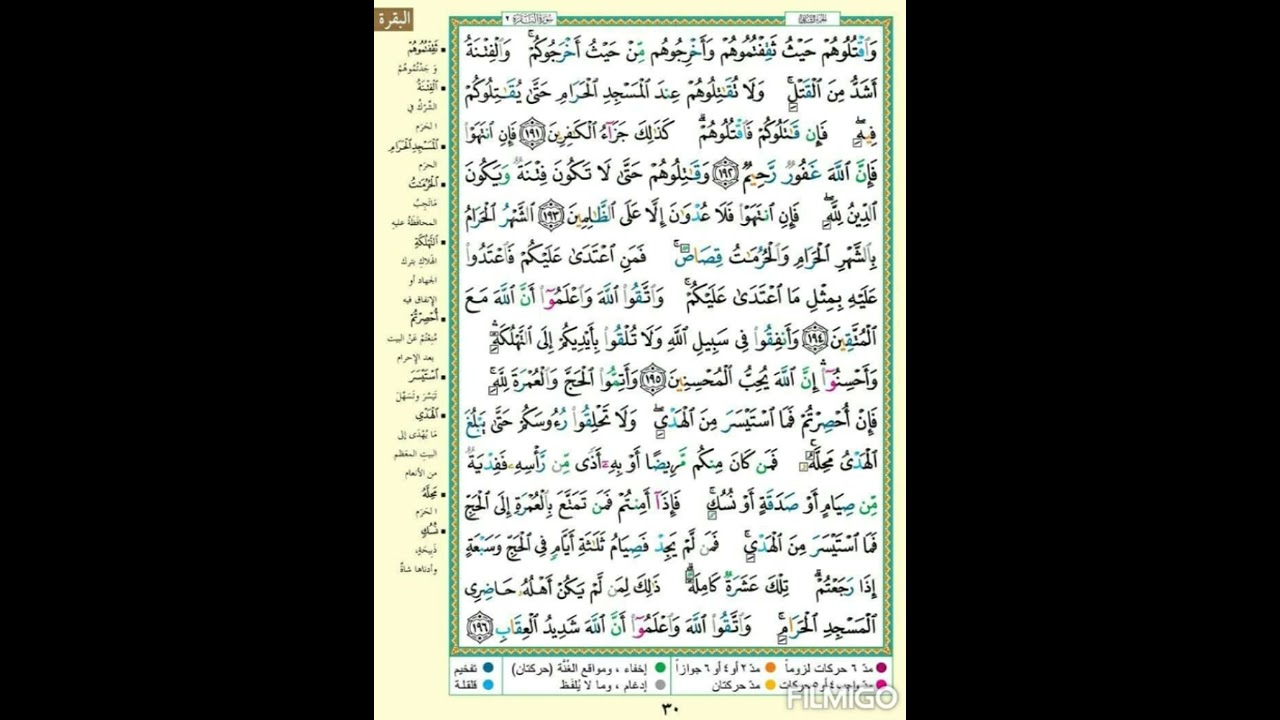 البقرة
سورة البقرة ٢
الجزء الثاني
وَٱقۡتُلُوهُمۡ حَيۡثُ ثَقِفۡتُمُوهُمۡ وَأَخۡرِجُوهُم مِّنۡ حَيۡثُ أَخۡرَجُوكُمۡۚ وَٱلۡفِتۡنَةُ
أَشَدُّ مِنَ ٱلۡقَتۡلِۚ وَلَا تُقَٰتِلُوهُمۡ عِندَ ٱلۡمَسۡجِدِ ٱلۡحَرَامِ حَتَّىٰ يُقَٰتِلُوكُمۡ
فِيهِۖ فَإِن قَٰتَلُوكُمۡ فَٱقۡتُلُوهُمۡۗ كَذَٰلِكَ جَزَآءُ ٱلۡكَٰفِرِينَ ١٩١ فَإِنِ ٱنتَهَوۡاْ
فَإِنَّ ٱللَّهَ غَفُورٞ رَّحِيمٞ ١٩٢ وَقَٰتِلُوهُمۡ حَتَّىٰ لَا تَكُونَ فِتۡنَةٞ وَيَكُونَ
ٱلدِّينُ لِلَّهِۖ فَإِنِ ٱنتَهَوۡاْ فَلَا عُدۡوَٰنَ إِلَّا عَلَى ٱلظَّٰلِمِينَ ١٩٣ ٱلشَّهۡرُ ٱلۡحَرَامُ
بِٱلشَّهۡرِ ٱلۡحَرَامِ وَٱلۡحُرُمَٰتُ قِصَاصٞۚ فَمَنِ ٱعۡتَدَىٰ عَلَيۡكُمۡ فَٱعۡتَدُواْ
عَلَيۡهِ بِمِثۡلِ مَا ٱعۡتَدَىٰ عَلَيۡكُمۡۚ وَٱتَّقُواْ ٱللَّهَ وَٱعۡلَمُوٓاْ أَنَّ ٱللَّهَ مَعَ
ٱلۡمُتَّقِينَ ١٩٤ وَأَنفِقُواْ فِي سَبِيلِ ٱللَّهِ وَلَا تُلۡقُواْ بِأَيۡدِيكُمۡ إِلَى ٱلتَّهۡلُكَةِۛ
وَأَحۡسِنُوٓاْۛ إِنَّ ٱللَّهَ يُحِبُّ ٱلۡمُحۡسِنِينَ ١٩٥ وَأَتِمُّواْ ٱلۡحَجَّ وَٱلۡعُمۡرَةَ لِلَّهِۚ
فَإِنۡ أُحۡصِرۡتُمۡ فَمَا ٱسۡتَيۡسَرَ مِنَ ٱلۡهَدۡيِۖ وَلَا تَحۡلِقُواْ رُءُوسَكُمۡ حَتَّىٰ يَبۡلُغَ
ٱلۡهَدۡيُ مَحِلَّهُۥۚ فَمَن كَانَ مِنكُم مَّرِيضًا أَوۡ بِهِۦٓ أَذٗى مِّن رَّأۡسِهِۦ فَفِدۡيَةٞ
مِّن صِيَامٍ أَوۡ صَدَقَةٍ أَوۡ نُسُكٖۚ فَإِذَآ أَمِنتُمۡ فَمَن تَمَتَّعَ بِٱلۡعُمۡرَةِ إِلَى ٱلۡحَجِّ
فَمَا ٱسۡتَيۡسَرَ مِنَ ٱلۡهَدۡيِۚ فَمَن لَّمۡ يَجِدۡ فَصِيَامُ ثَلَٰثَةِ أَيَّامٖ فِي ٱلۡحَجِّ وَسَبۡعَةٍ
إِذَا رَجَعۡتُمۡۗ تِلۡكَ عَشَرَةٞ كَامِلَةٞۗ ذَٰلِكَ لِمَن لَّمۡ يَكُنۡ أَهۡلُهُۥ حَاضِرِي
ٱلۡمَسۡجِدِ ٱلۡحَرَامِۚ وَٱتَّقُواْ ٱللَّهَ وَٱعۡلَمُوٓاْ أَنَّ ٱللَّهَ شَدِيدُ ٱلۡعِقَابِ ١٩٦
ثَقِفْتُمُوهُمْ
وَجَدْتُمُوهُمْ
الْفِتْنَةُ
الشِّرْكُ في
الحَرَم
الْمَسْجِدِ الْحَرَامِ
الحَرَم
الْحُرُمَٰتُ
مَا تَجِبُ
المحافَظَةُ عليهِ
التَّهْلُكَةِ
الهَلاكِ بترك
الجهاد أو
الإنفاق فيه
أُحْصِرْتُمْ
مُنِعْتُمْ عَنْ البيت
بعد الإحرام
اسْتَيْسَرَ
تَيَسَّرَ وتَسَهَّلَ
الْهَدْيِ
مَا يُهْدَى إلى
البيتِ المعظم
من الأنعام
مَحِلَّهُ
الحَرَم
نُسُكٍ
ذَبِيحَةٍ
وأدناها شاةٌ
مدّ ٦ حركات لزوماً ● مدّ ٢ أو ٤ أو ٦ جوازاً ● إخفاء ، ومواقع الغُنَّة (حركتان) ● تفخيم
مدّ واجب ٤ أو ٥ حركات ● مدّ حركتان ● إدغام ، وما لا يُلفَظ ● قلقلة
٣٠
FILMIGO